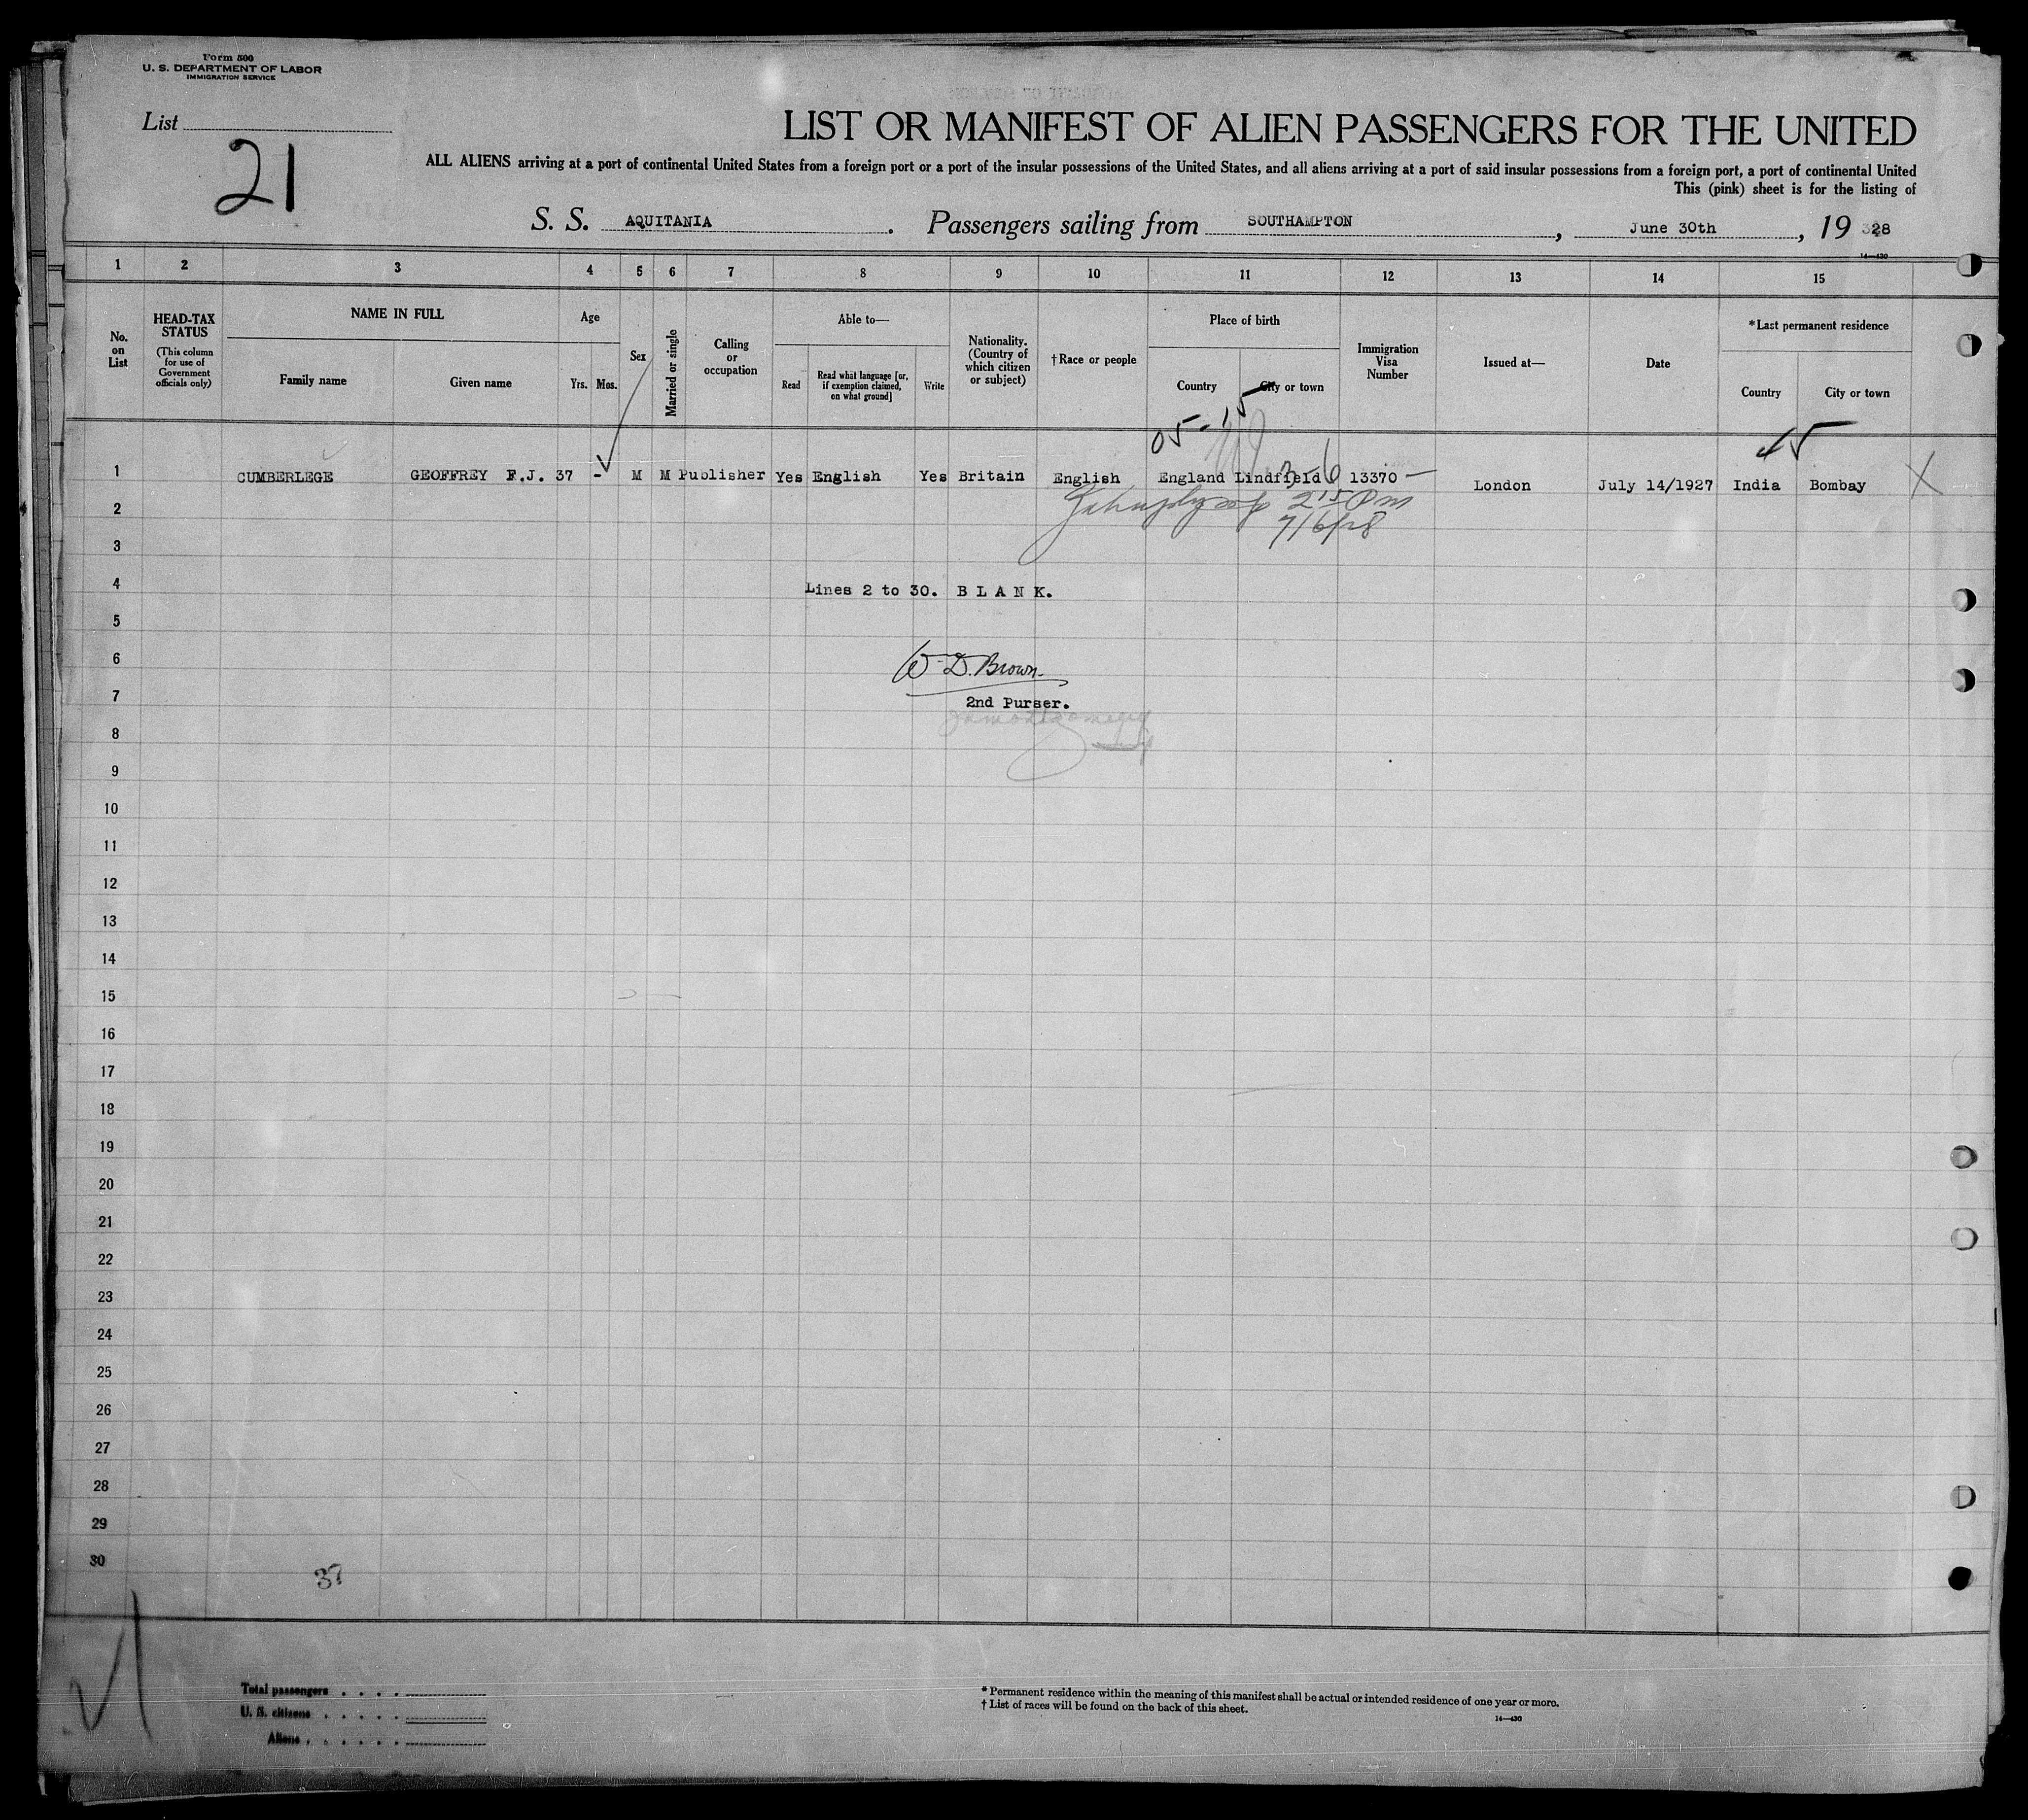 Form 500
U. S. DEPARTMENT OF LABOR
IMMIGRATION SERVICE
List
21
LIST OR MANIFEST OF ALIEN PASSENGERS FOR THE UNITED
ALL ALIENS arriving at a port of continental United States from a foreign port or a port of the insular possessions of the United States, and all aliens arriving at a port of said insular possessions from a foreign port, a port of continental United
This (pink) sheet is for the listing of
S. S. AQUITANIA. Passengers sailing from SOUTHAMPTON, June 30th, 19 28
14—430
1 2 3 4 5 6 7 8 9 10 11 12 13 14 15
No. on List
HEAD-TAX STATUS
(This column for use of Government officials only)
NAME IN FULL
Family name
Given name
Age
Yrs. Mos.
Sex
Married or single
Calling or occupation
Able to—
Read
Read what language [or, if exemption claimed, on what ground]
Write
Nationality. (Country of which citizen or subject)
†Race or people
Place of birth
Country
City or town
Immigration Visa Number
Issued at—
Date
*Last permanent residence
Country
City or town
05-15
45
1 CUMBERLEGE GEOFFREY F.J. 37 - M M Publisher Yes English Yes Britain English England Lindfield 13370 London July 14/1927 India Bombay X
3-6
2
215 Pm
7/6/28
3
4 Lines 2 to 30. BLANK.
5
6 W D. Brown
7 2nd Purser.
8
9
10
11
12
13
14
15
16
17
18
19
20
21
22
23
24
25
26
27
28
29
30
37
Total passengers . . . .
U. S. citizens . . . . .
Aliens . . . . . .
* Permanent residence within the meaning of this manifest shall be actual or intended residence of one year or more.
† List of races will be found on the back of this sheet.
14—430